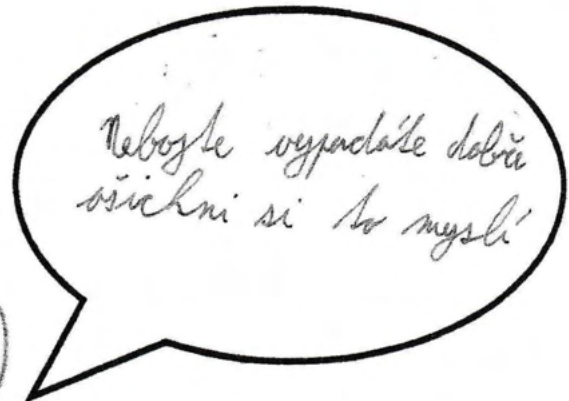 Nebojte vypadáte dobře
všichni si to myslí